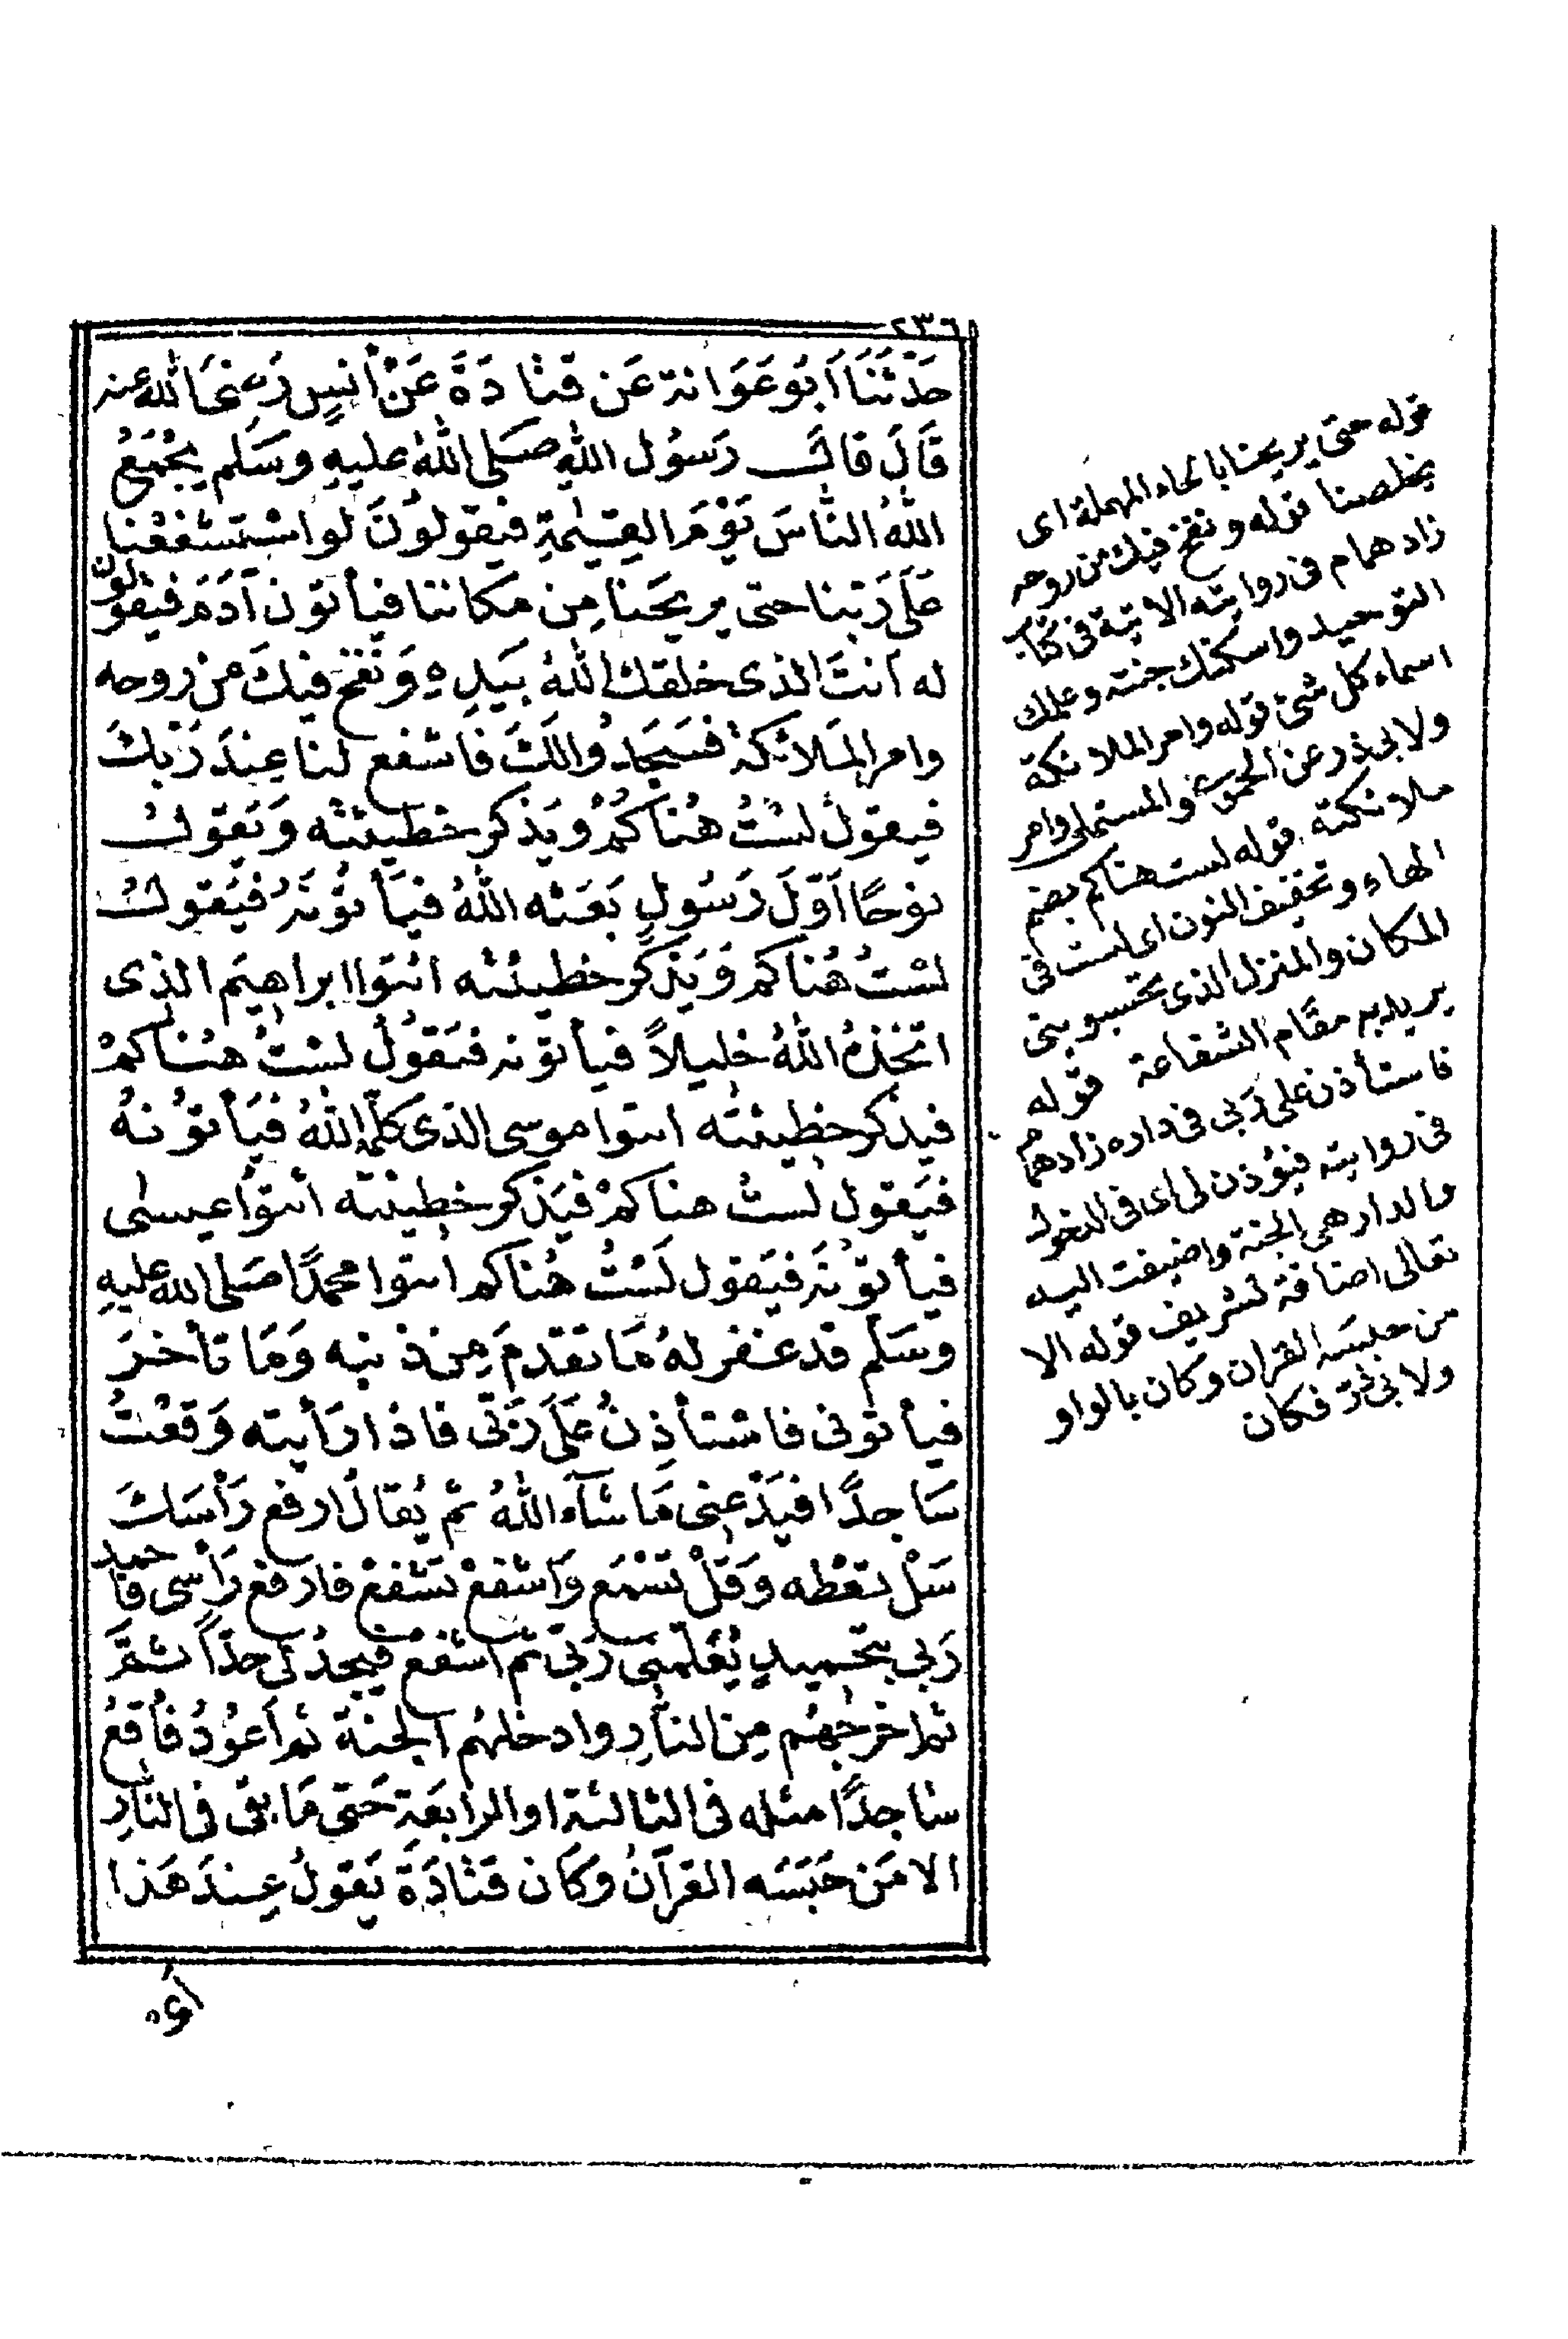 ٢٣٦
حَدَّثَنَا اَبُو عَوَانة عَن قتادَةَ عَنْ أنَسٍ رَضِىَ اللهُ عنه
قَالَ قالَ رَسُول اللهِ صَلى اللهُ عليهِ وسَلم يجْمَعُ
اللهُ الناسَ يَوْمَ القِيٰمةِ فيقولوُنَ لو اسْتَشْفَعْنا
عَلَى رَبّنا حتى يريحَنا مِن مكاننا فيأتون آدَمَ فيقولون
له اَنتَ الذى خلقك اللهُ بيَدِهِ وَنفَخَ فيكَ من روحه
وامر المَلائكة فسَجَدُوا لكَ فاشفع لنا عِندَ رَبّكَ
فيقولُ لسْتُ هُناكُمْ ويَذكر خطيئتَه وَيَقولُ
نوحًا اَوّلَ رَسُولٍ بَعَثه اللهُ فيَأتوُنَهُ فيَقولُ
لسْتُ هُناكم وَيَذكرُ خطيئته ائتوا ابراهيم الذى
اتخذهُ اللهُ خليلاً فيأتونه فيَقوُلُ لسْتُ هُناكمْ
فيذكر خطيئتَه ائتوا موسى الذى كلّمهُ اللهُ فيَأتوُنهُ
فيَقولُ لستُ هناكمْ فيَذكر خطيئته ائتوُا عيسٰى
فيأتوُنَه فيَقول لَسْتُ هُناكم ائتوا محمدًا صَلى الله عليهِ
وسَلّم قد غفر لهُ مَا تقدمَ مِن ذنبه وَمَا تأخرَ
فيأتونى فاسْتأذِنُ عَلَى رَبّى فاذا رَأيته وَقعْتُ
سَاجدًا فيَدَعنِى مَا شآء اللهُ ثم يُقالُ ارفع رَأسَكَ
سَلْ تعْطه وَقلْ تسْمَع وَاشفعْ تشفعْ فارفع رَأسى فاحمد
رَبى بتحْميدٍ يُعَلّمُنِى رَبى ثم اشفعُ فيَحدُّ لى حدّاً ثمَّ
ثم اخرجهُم مِن النارِ وادخلهُم الجنة ثم اَعُودُ فأقعُ
سَاجدًا مثله فى الثالثة او الرابعَةِ حَتى مَا بقى فى النارِ
الا مَن حَبَسَه القرآنُ وكَان قتادَةَ يَقولُ عِندَ هَذا
قوله حتى يريحنا بالحاء المهملة اى
يخلصنا قوله ونفخ فيك من روحه
زاد همام فى روايته الاتية فى كتاب
التوحيد واسكنك جنته وعلمك
اسماء كل شئ قوله وامر الملائكة
ولابى ذر عن الحموى والمستملى وامر
ملائكته قوله لست هناكم بضم
الهاء وتخفيف النون اى لست فى
المكان والمنزل الذى تحسبوننى
يريد به مقام الشفاعة قوله
فاستأذن على ربى فى داره زاد همام
فى روايته فيؤذن لى اى فى الدخول
والدار هى الجنة واضيفت اليه
تعالى اضافة تشريف قوله الا
من حبسه القران وكان بالواو
ولابى ذر فكان